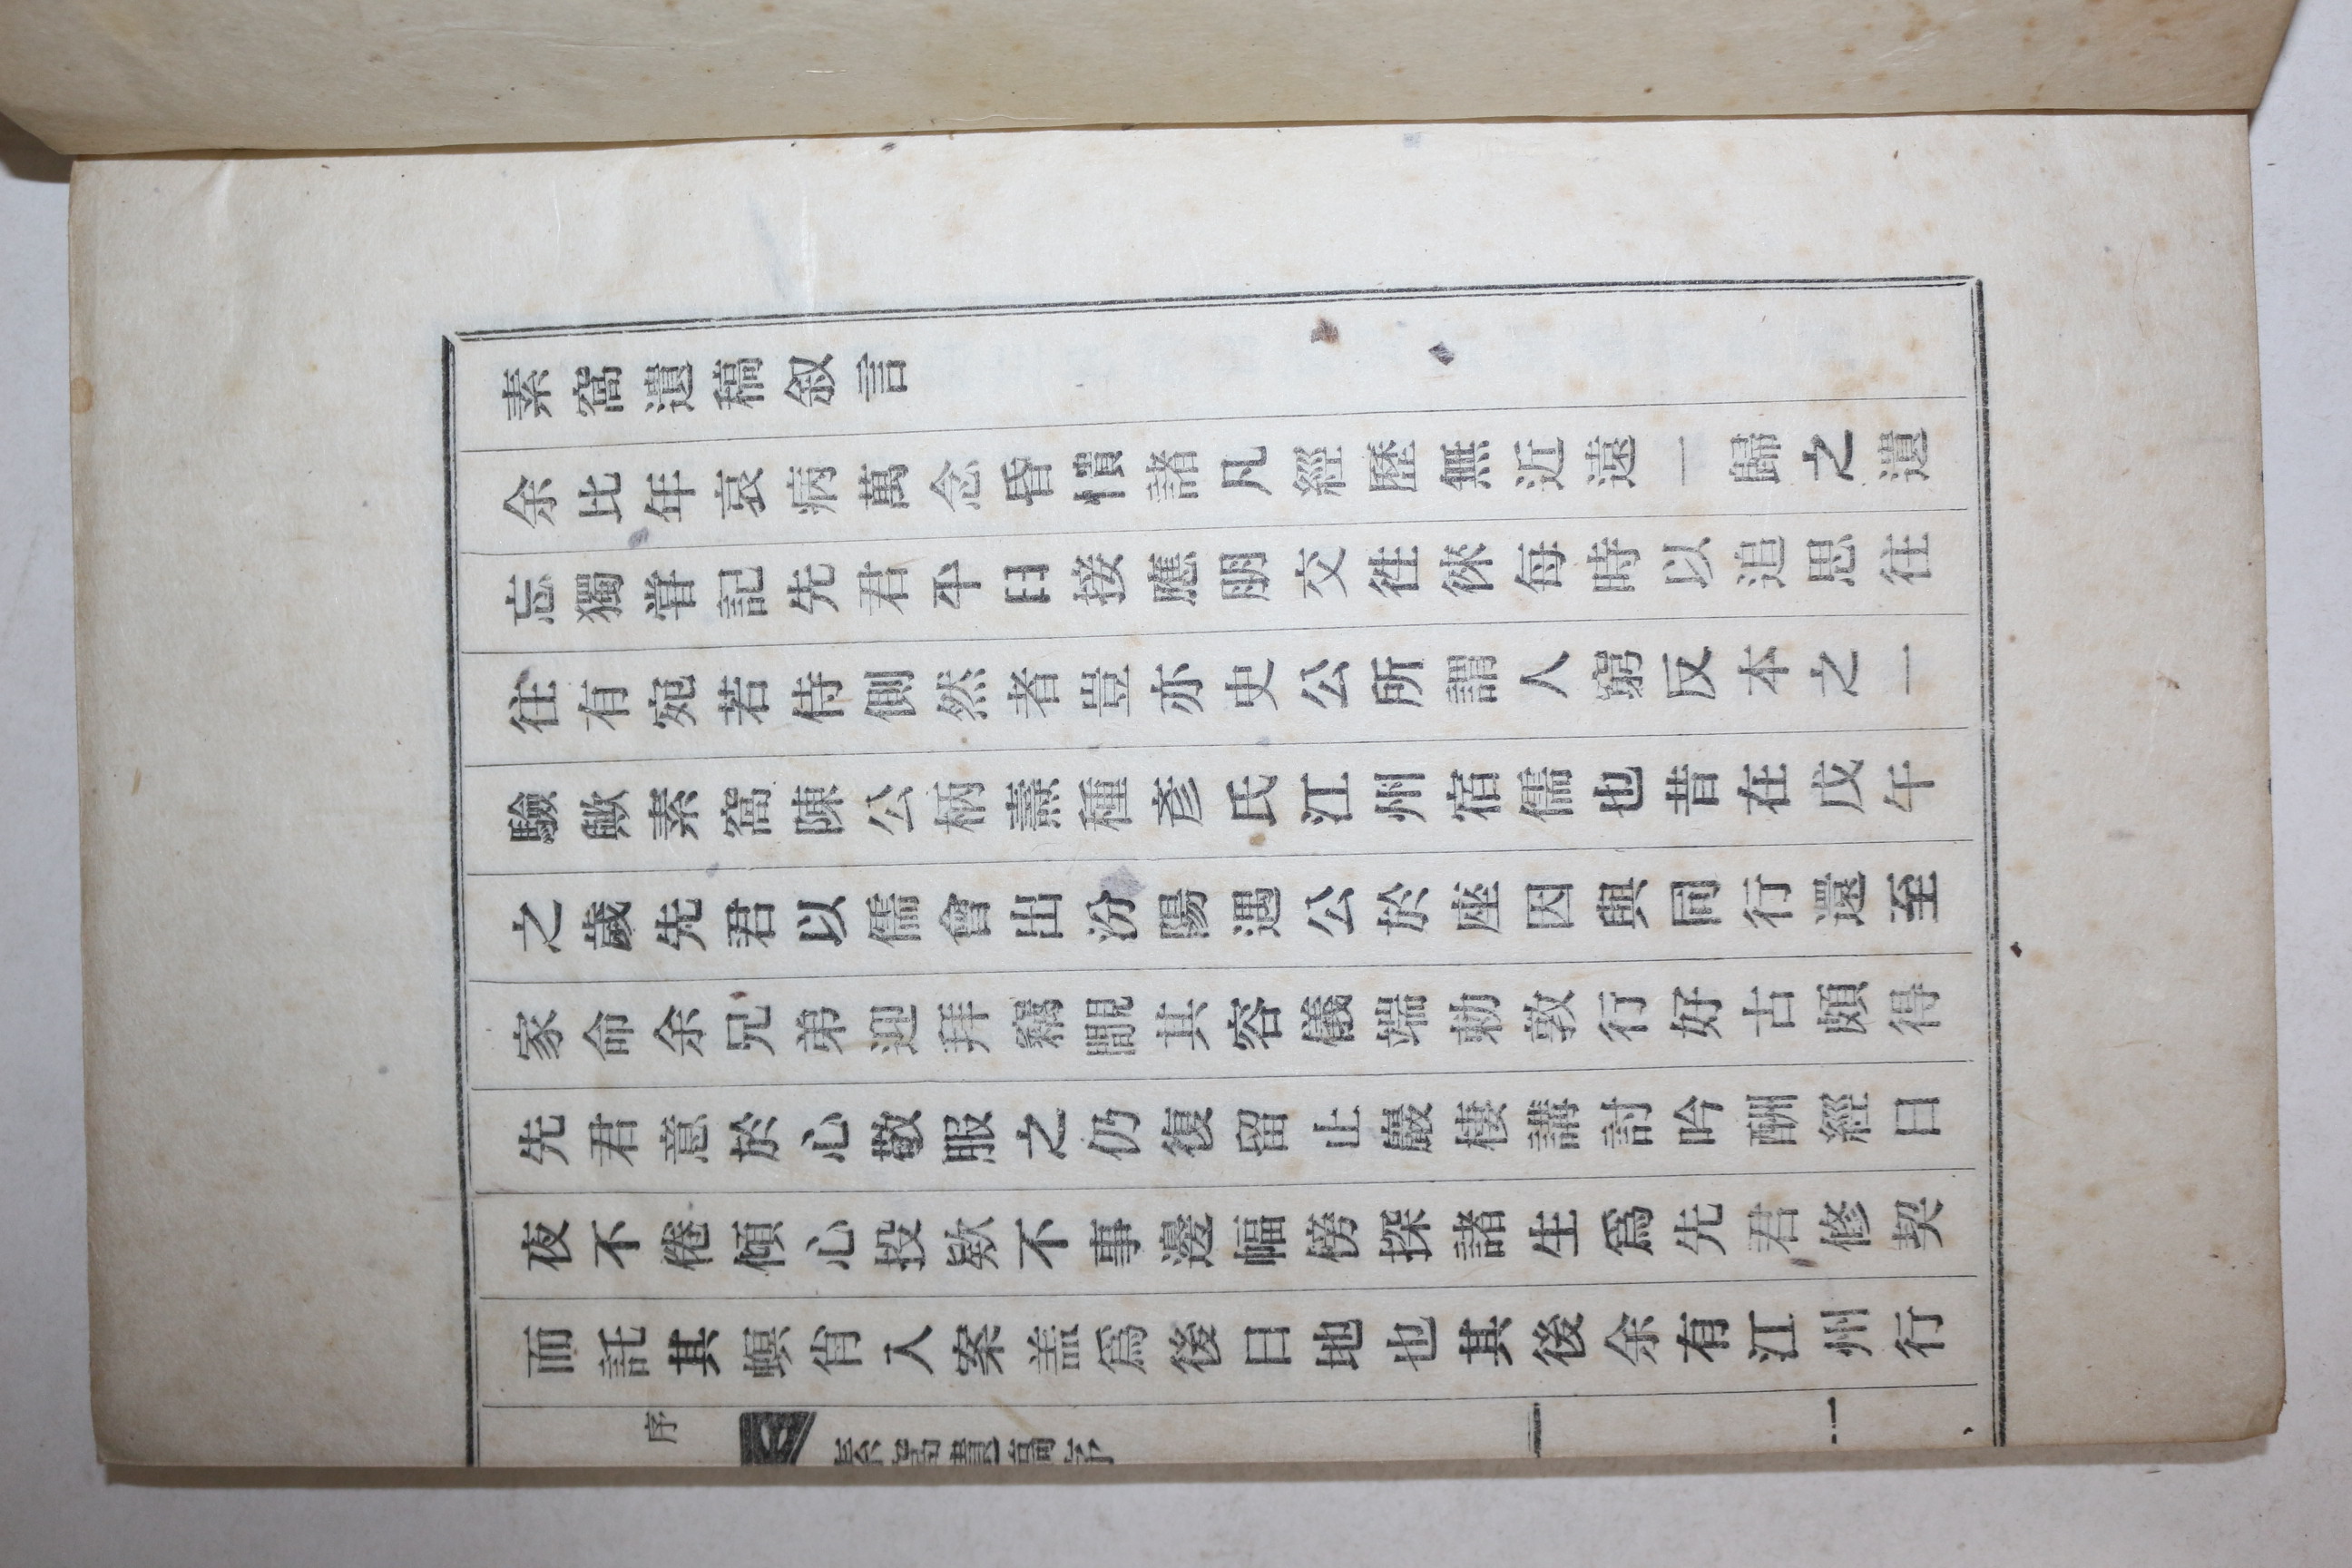 素窩遺稿叙言
余比年哀病萬念昏憒諸凡經歷無近遠一歸之遺
忘獨甞記先君平日接應朋交徃徠每時以追思往
往有宛若侍側然者豈亦史公所謂人窮反本之一
驗歟素窩陳公柄燾種彥氏江州宿儒也昔在戊午
之歲先君以儒會出汾陽遇公於座因與同行還至
家命余兄弟迎拜竊覸其容儀端勅敦行好古頗得
先君意於心敬服之仍復留止巖棲講討吟酬經日
夜不倦傾心投欵不事邊幅傍探諸生爲先君修契
而託其螟肖入案盖爲後日地也其後余有江州行
序
素窩遺稿序
一